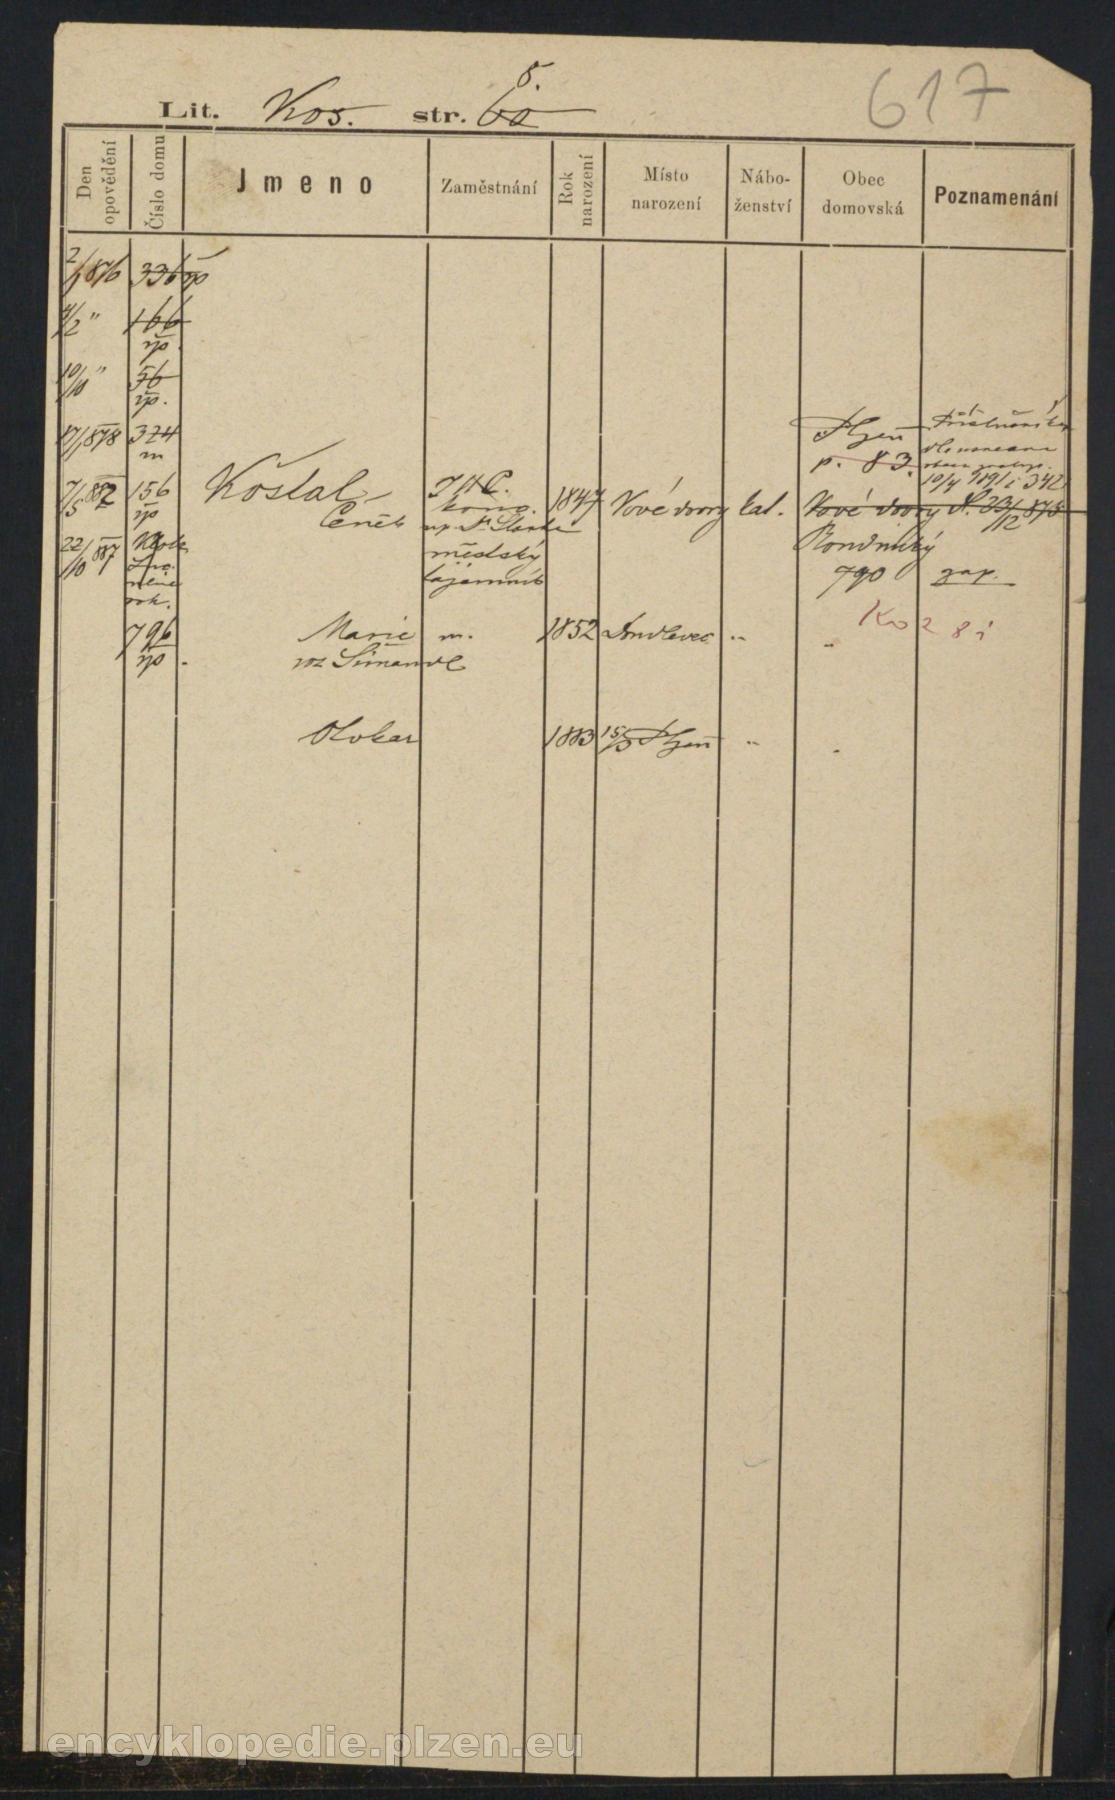 617
5.
Lit. Kos. str. 60
Den opovědění
Číslo domu
Jmeno
Zaměstnání
Rok narození
Místo narození
Nábo-ženství
Obec domovská
Poznamenání
2/1 876 336 řp
4/2 " 166 řp.
10/10 " 56 řp.
17/1 878 324 m
Plzeň
p. 83.
10/4 919 i 342
7/5 882 156 řp
Košťal
Čeněk
1847 Nové dvory kat. Nové dvory 23/12 873
městský
tajemník
22/10 887
790 zap.
Ko 2 8 i
796 řp.
Marie m. 1852 "
roz Šimandl
Otokar 1883 15/5 Plzeň "
encyklopedie.plzen.eu